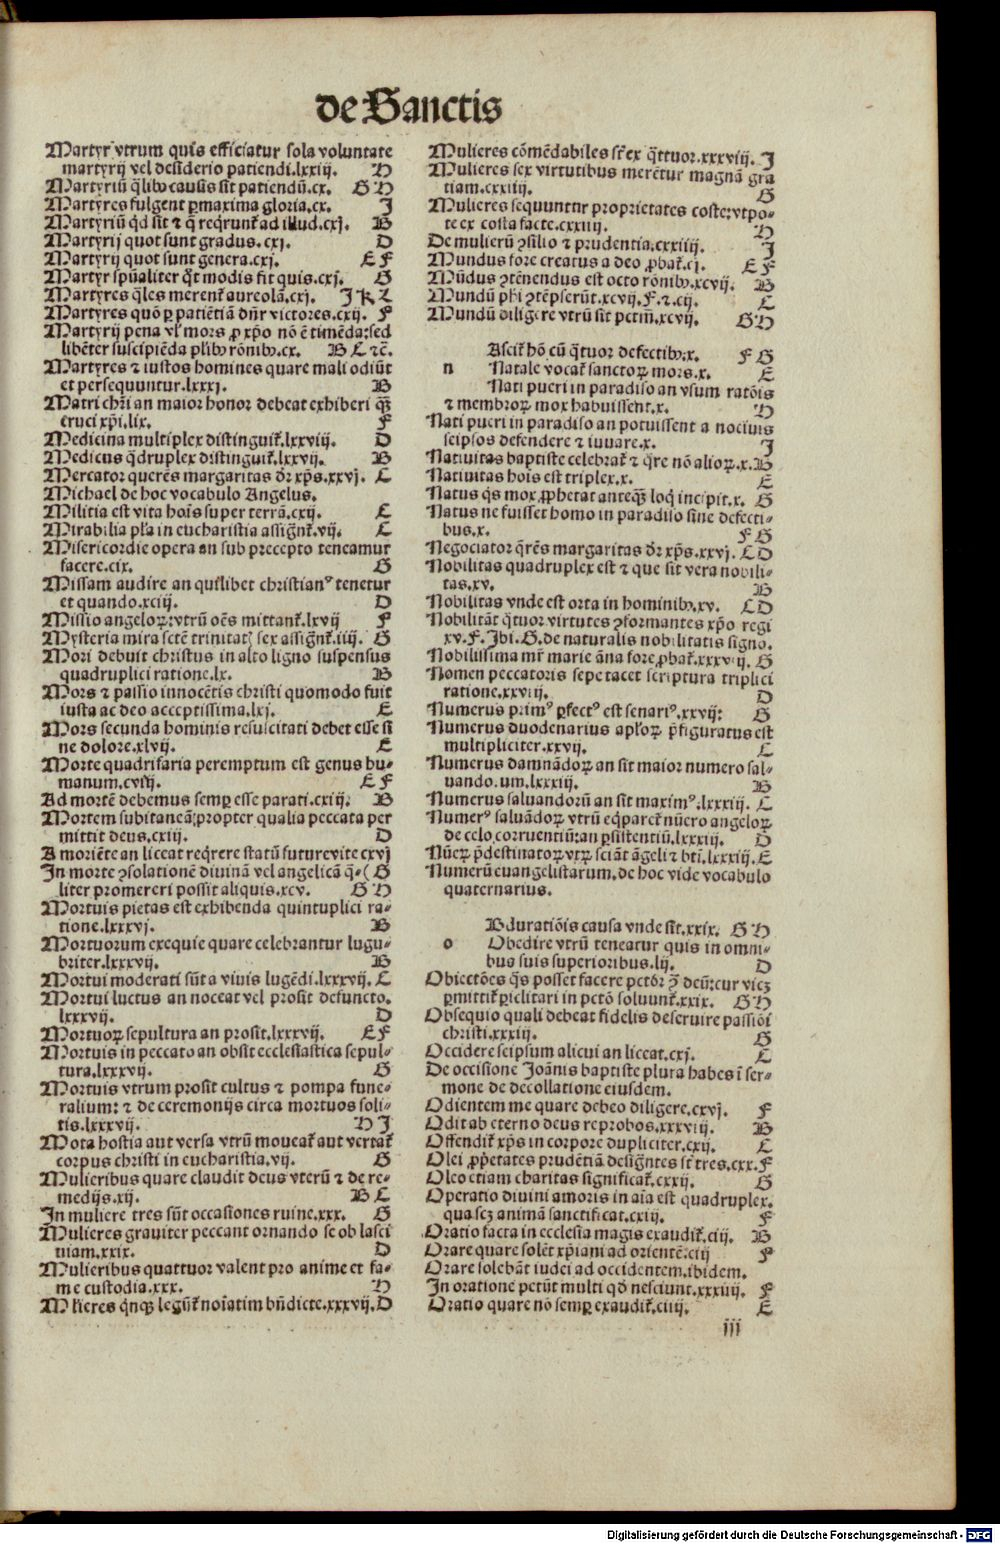 de Sanctis
Martyr vtrum quis efficiatur sola voluntate
martyrij vel desiderio patiendi.lxxiij. H
Martyriū q̄libꝫ causis sit patiendū.cx. G H
Martyres fulgent ꝑmaxima gloria.cx. I
Martyriū qd̄ sit ⁊ q̄ reqrunt̄ ad illud.cxj. B
Martyrij quot sunt gradus.cxj. D
Martyrij quot sunt genera.cxj. E F
Martyr spūaliter q̄t modis fit quis.cxj. G
Martyres q̄les merent̄ aureolā.cxj. I K L
Martyres quō ꝑ patiētiā dn̄r victores.cxij. F
Martyrij pena vl̓ mors ꝓ xp̄o nō ē timēda:sed
libēter suscipiēda pl̓ibꝫ rōnibꝫ.cx. B C ⁊c̄.
Martyres ⁊ iustos homines quare mali odiūt
et persequuntur.lxxxj. B
Matri chr̄i an maior honor debeat exhiberi q̄ꝫ
cruci xp̄i.lix. F
Medicina multiplex distinguit̄.lxxviij. D
Medicus q̄druplex distinguit̄.lxxvij. B
Mercator querēs margaritas dr̄ xp̄s.xxvj. C
Michael de hoc vocabulo Angelus.
Militia est vita hoīs super terrā.cxij. E
Mirabilia pl̓a in eucharistia assign̄t̄.vij. C
Misericordie opera an sub precepto teneamur
facere.cix. G
Missam audire an quilibet christianꝰ tenetur
et quando.xciij. D
Missio angeloꝝ:vtrū oēs mittant̄.lxvij F
Mysteria mira sctē trinitatꝭ sex assign̄t̄.iiij. G
Mori debuit christus in alto ligno suspensus
quadruplici ratione.lx. B
Mors ⁊ passio innocētis christi quomodo fuit
iusta ac deo acceptissima.lxj. E
Mors secunda hominis resuscitati debet esse si
ne dolore.xlvij. E
Morte quadrifaria peremptum est genus hu-
manum.cviij. E F
Ad mortē debemus semꝑ esse parati.cxiij. B
Mortem subitaneā:propter qualia peccata per
mittit deus.cxiij. D
A moriēte an liceat reqrere statū futurevite cxvj
In morte ꝯsolationē diuinā vel angelicā q̄-(G
liter promereri possit aliquis.xcv. G H
Mortuis pietas est exhibenda quintuplici ra-
tione.lxxxvj. B
Mortuorum exequie quare celebrantur lugu-
briter.lxxxvij. B
Mortui moderati sūt a viuis lugēdi.lxxxvij. C
Mortui luctus an noceat vel prosit defuncto.
lxxxvij. D
Mortuoꝝ sepultura an prosit.lxxxvij. E F
Mortuis in peccato an obsit ecclesiastica sepul-
tura.lxxxvij. G
Mortuis vtrum prosit cultus ⁊ pompa fune-
ralium: ⁊ de ceremonijs circa mortuos soli-
tis.lxxxvij. H I
Mota hostia aut versa vtrū moueat̄ aut vertat̄
corpus christi in eucharistia.vij. G
Mulieribus quare claudit deus vterū ⁊ de re-
medijs.xij. B C
In muliere tres sūt occasiones ruine.xxx. G
Mulieres grauiter peccant ornando se ob lasci
uiam.xxix. D
Mulieribus quattuor valent pro anime et fa-
me custodia.xxx. H
Mulieres q̄nqꝫ legūt̄ noīatim bn̄dicte.xxxvij. D
Mulieres cōmēdabiles sr̄ ex q̄ttuor.xxxviij. I
Mulieres sex virtutibus merētur magnā gra
tiam.cxxiiij. G
Mulieres sequuntur proprietates coste:vtpo-
te ex costa facte.cxxiiij. H
De mulierū ꝯsilio ⁊ prudentia.cxxiiij. I
Mundus fore creatus a deo ꝓbat̄.cj. E F
Mūdus ꝯtēnendus est octo rōnibꝫ.xcvij. B
Mundū pl̓i ꝯtēpserūt.xcvij.F.⁊.cij. C
Mundū diligere vtrū sit pctm̄.xcvij. G H
Ascit̄ hō cū q̄tuor defectibꝫ:x. F G
n Natale vocat̄ sanctoꝝ mors.x. E
Nati pueri in paradiso an vsum ratōis
⁊ membroꝝ mox habuissent.x. H
Nati pueri in paradiso an potuissent a nociuis
seipsos defendere ⁊ iuuare.x. I
Natiuitas baptiste celebrat̄ ⁊ q̄re nō alioꝝ.x. B
Natiuitas hoīs est triplex.x. E
Natus q̄s mox ꝓphetat anteq̄ꝫ loq̄ incipit.x. G
Natus ne fuisset homo in paradiso sine defecti-
bus.x. F G
Negociator q̄rēs margaritas dr̄ xp̄s.xxvj. C D
Nobilitas quadruplex est ⁊ que sit vera nobili-
tas.xv. B
Nobilitas vnde est orta in hominibꝫ.xv. C D
Nobilitāt q̄tuor virtutes ꝯformantes xp̄o regi
xv.F.Ibi.G.de naturalis nobilitatis signo.
Nobilissima mr̄ marie āna fore ꝓbat̄.xxxvij. G
Nomen peccatoris sepe tacet scriptura triplici
ratione.xxviij. D
Numerus primꝰ ꝑfectꝰ est senariꝰ.xxvij: G
Numerus duodenarius apl̓oꝝ p̄figuratus est
multipliciter.xxvij. C
Numerus damnādoꝝ an sit maior numero sal-
uando.um.lxxxiij. B
Numerus saluandorū an sit maximꝰ.lxxxiij. C
Numerꝰ saluādoꝝ vtrū eq̄paret̄ nūero angeloꝝ
de celo corruentiū:an ꝑsistentiū.lxxxiij. D
Nūeꝝ p̄destinatoꝝ vtꝝ sciāt āgeli ⁊ bt̄i.lxxxiij. E
Numerū euangelistarum.de hoc vide vocabulo
quaternarius.
Bdurationis causa vnde sit.xxix. G H
o Obedire vtrū teneatur quis in omni-
bus suis superioribus.lij. D
Obiectōes q̄s posset facere pctōr ꝯ̄ deū:cur vicꝫ
ꝑmittit̄ ꝑiclitari in pctō soluunt̄.xxix. G H
Obsequio quali debeat fidelis deseruire passiōi
christi.xxxiij. G
Occidere seipsum alicui an liceat.cxj. C
De occisione Joānis baptiste plura habes ī ser-
mone de decollatione eiusdem.
Odientem me quare debeo diligere.cxvj. F
Odit ab eterno deus reprobos.xxxviij. B
Offendit̄ xp̄s in corpore dupliciter.cxij. C
Olei ꝓp̄etates prudētiā design̄tes sr̄ tres.cxx. F
Oleo etiam charitas significat̄.cxxij. G
Operatio diuini amoris in aīa est quadruplex.
qua scꝫ animā sanctificat.cxiij. F
Oratio facta in ecclesia magis exaudit̄.ciij. B
Orare quare solēt xp̄iani ad orientē:ciij F
Orare solebāt iudei ad occidentem.ibidem.
In oratione petūt multi qd̄ nesciunt.xxxiiij. F
Oratio quare nō semꝑ exaudit̄.ciiij. E
iij
Digitalisierung gefördert durch die Deutsche Forschungsgemeinschaft - DFG